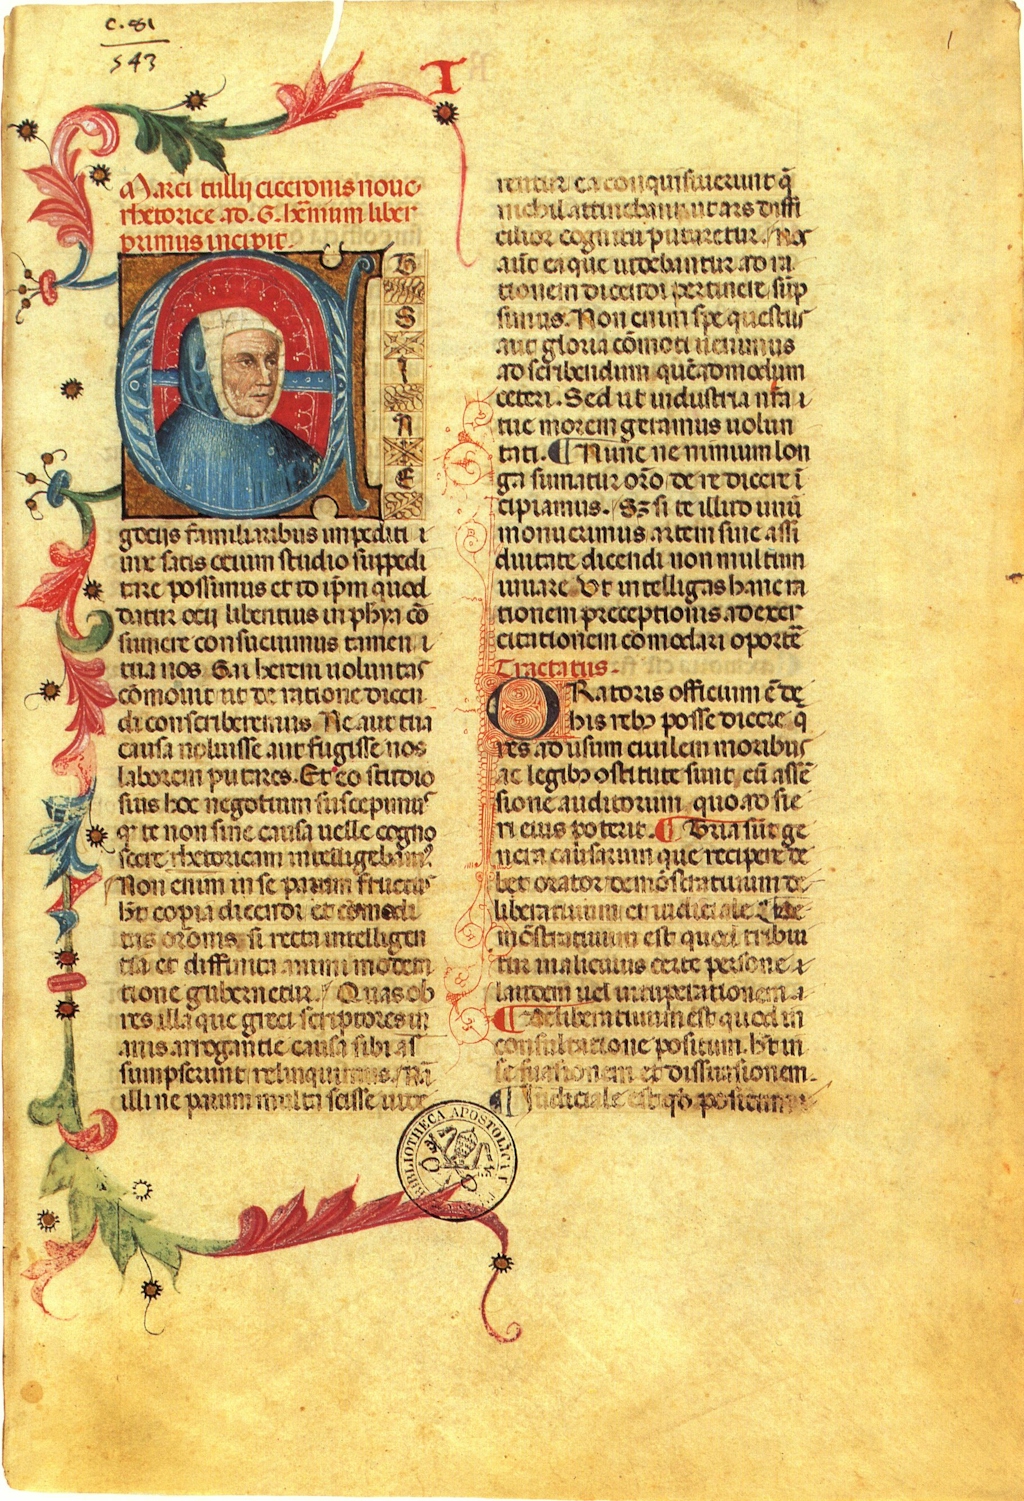 C. 81
543
1
I
Marci tullij ciceronis noue
rhetorice ad. G. hēnium liber
primus incipit.
E
TSI NE
gocijs familiaribus impediti i
uix satis ocium studio suppedi
tare possumus et id ip̄m quod
datur ocij libentius in phya cō
sumere consueuimus tamen i
tua nos. Gai herēni uoluntas
cōmouit ut de ratione dicen
di conscriberemus. Ne aut tua
causa noluisse aut fugisse nos
laborem putares. Et eo studio
sius hoc negotium suscepimus
q te non sine causa uelle cogno
scere rhetoricam intelligebam9
Non enim in se parum fructus
h̄t copia dicendi et comodi
tas or̄onis, si recta intelligen
tia et diffinita animi modera
tione gubernetur. Quas ob
res illa que greci scriptores in
anis arrogantie causa sibi as
sumpserunt relinquimus. Nā
illi ne parum multa scisse uide
rentur ea conquisiuerunt q̄
nichil attinebant, ut ars diffi
cilior cognitu putaretur. Nos
aut̄ ea que uidebantur ad ra
tionem dicendi pertinere sūp
simus. Non enim spe questus
aut gloria cōmoti uenimus
ad scribendum quēadmodum
ceteri. Sed ut industria nr̄a i
tue morem geramus uolun
tati. Nunc ne nimium lon
ga sumatur or̄o de re dicere i
cipiamus. Sz si te illud unū
monuerimus artem sine assi
duitate dicendi non multum
iuuare. Vt intelligas hanc ra
tionem preceptionis ad exer
citationem comodari oportē
Tractatus.
ORatoris officium ē de
his rebz posse dicere q̄
res ad usum ciuilem moribus
ac legibz ostitute sunt, cū assē
sione auditorum quoad fie
ri eius poterit. Tria sūt ge
nera causarum que recipere de
bet orator demōstratiuum de
liberatiuum et iudiciale De
mōstratiuum est quod tribui
tur in alicuius certe persone i
laudem uel uituperationem.
Deliberatiuum est quod in
consultatione positum. h̄t in
se suasionem et dissuasionem.
Judiciale est qd positum
BIBLIOTHECA APOSTOLICA